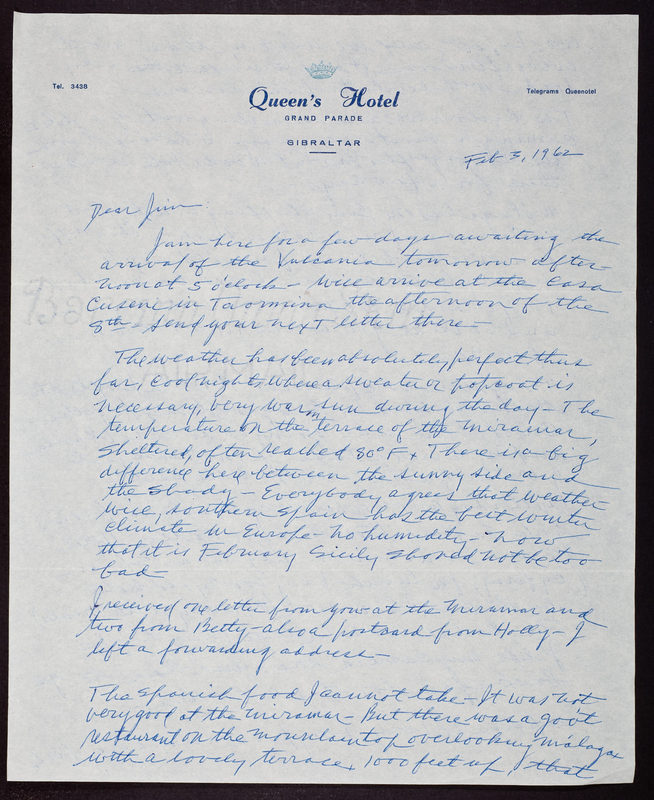 Tel. 3438
Queen's Hotel
Telegrams Queenotel
GRAND PARADE
GIBRALTAR
Feb 3, 1962
Dear Jim:
I am here for a few days awaiting the
arrival of the Vulcania tomorrow after-
noon at 5 o'clock - will arrive at the Casa
Cuseni in Taormina the afternoon of the
8th - Send your next letter there -
The weather has been absolutely perfect thus
far, cool nights where a sweater or topcoat is
necessary, very warm sun during the day - The
temperature on the terrace of the Miramar,
sheltered, often reached 80° F + There is a big
difference here between the sunny side and
the shady - Everybody agrees that weather-
wise, southern Spain has the best winter
climate in Europe - no humidity - now
that it is February Sicily should not be too
bad -
I received one letter from you at the Miramar and
two from Betty - also a postcard from Holly - I
left a forwarding address -
The Spanish food I cannot take - It was not
very good at the Miramar - But there was a gov't
restaurant on the mountain top overlooking Málaga
with a lovely terrace, 1000 feet up, that